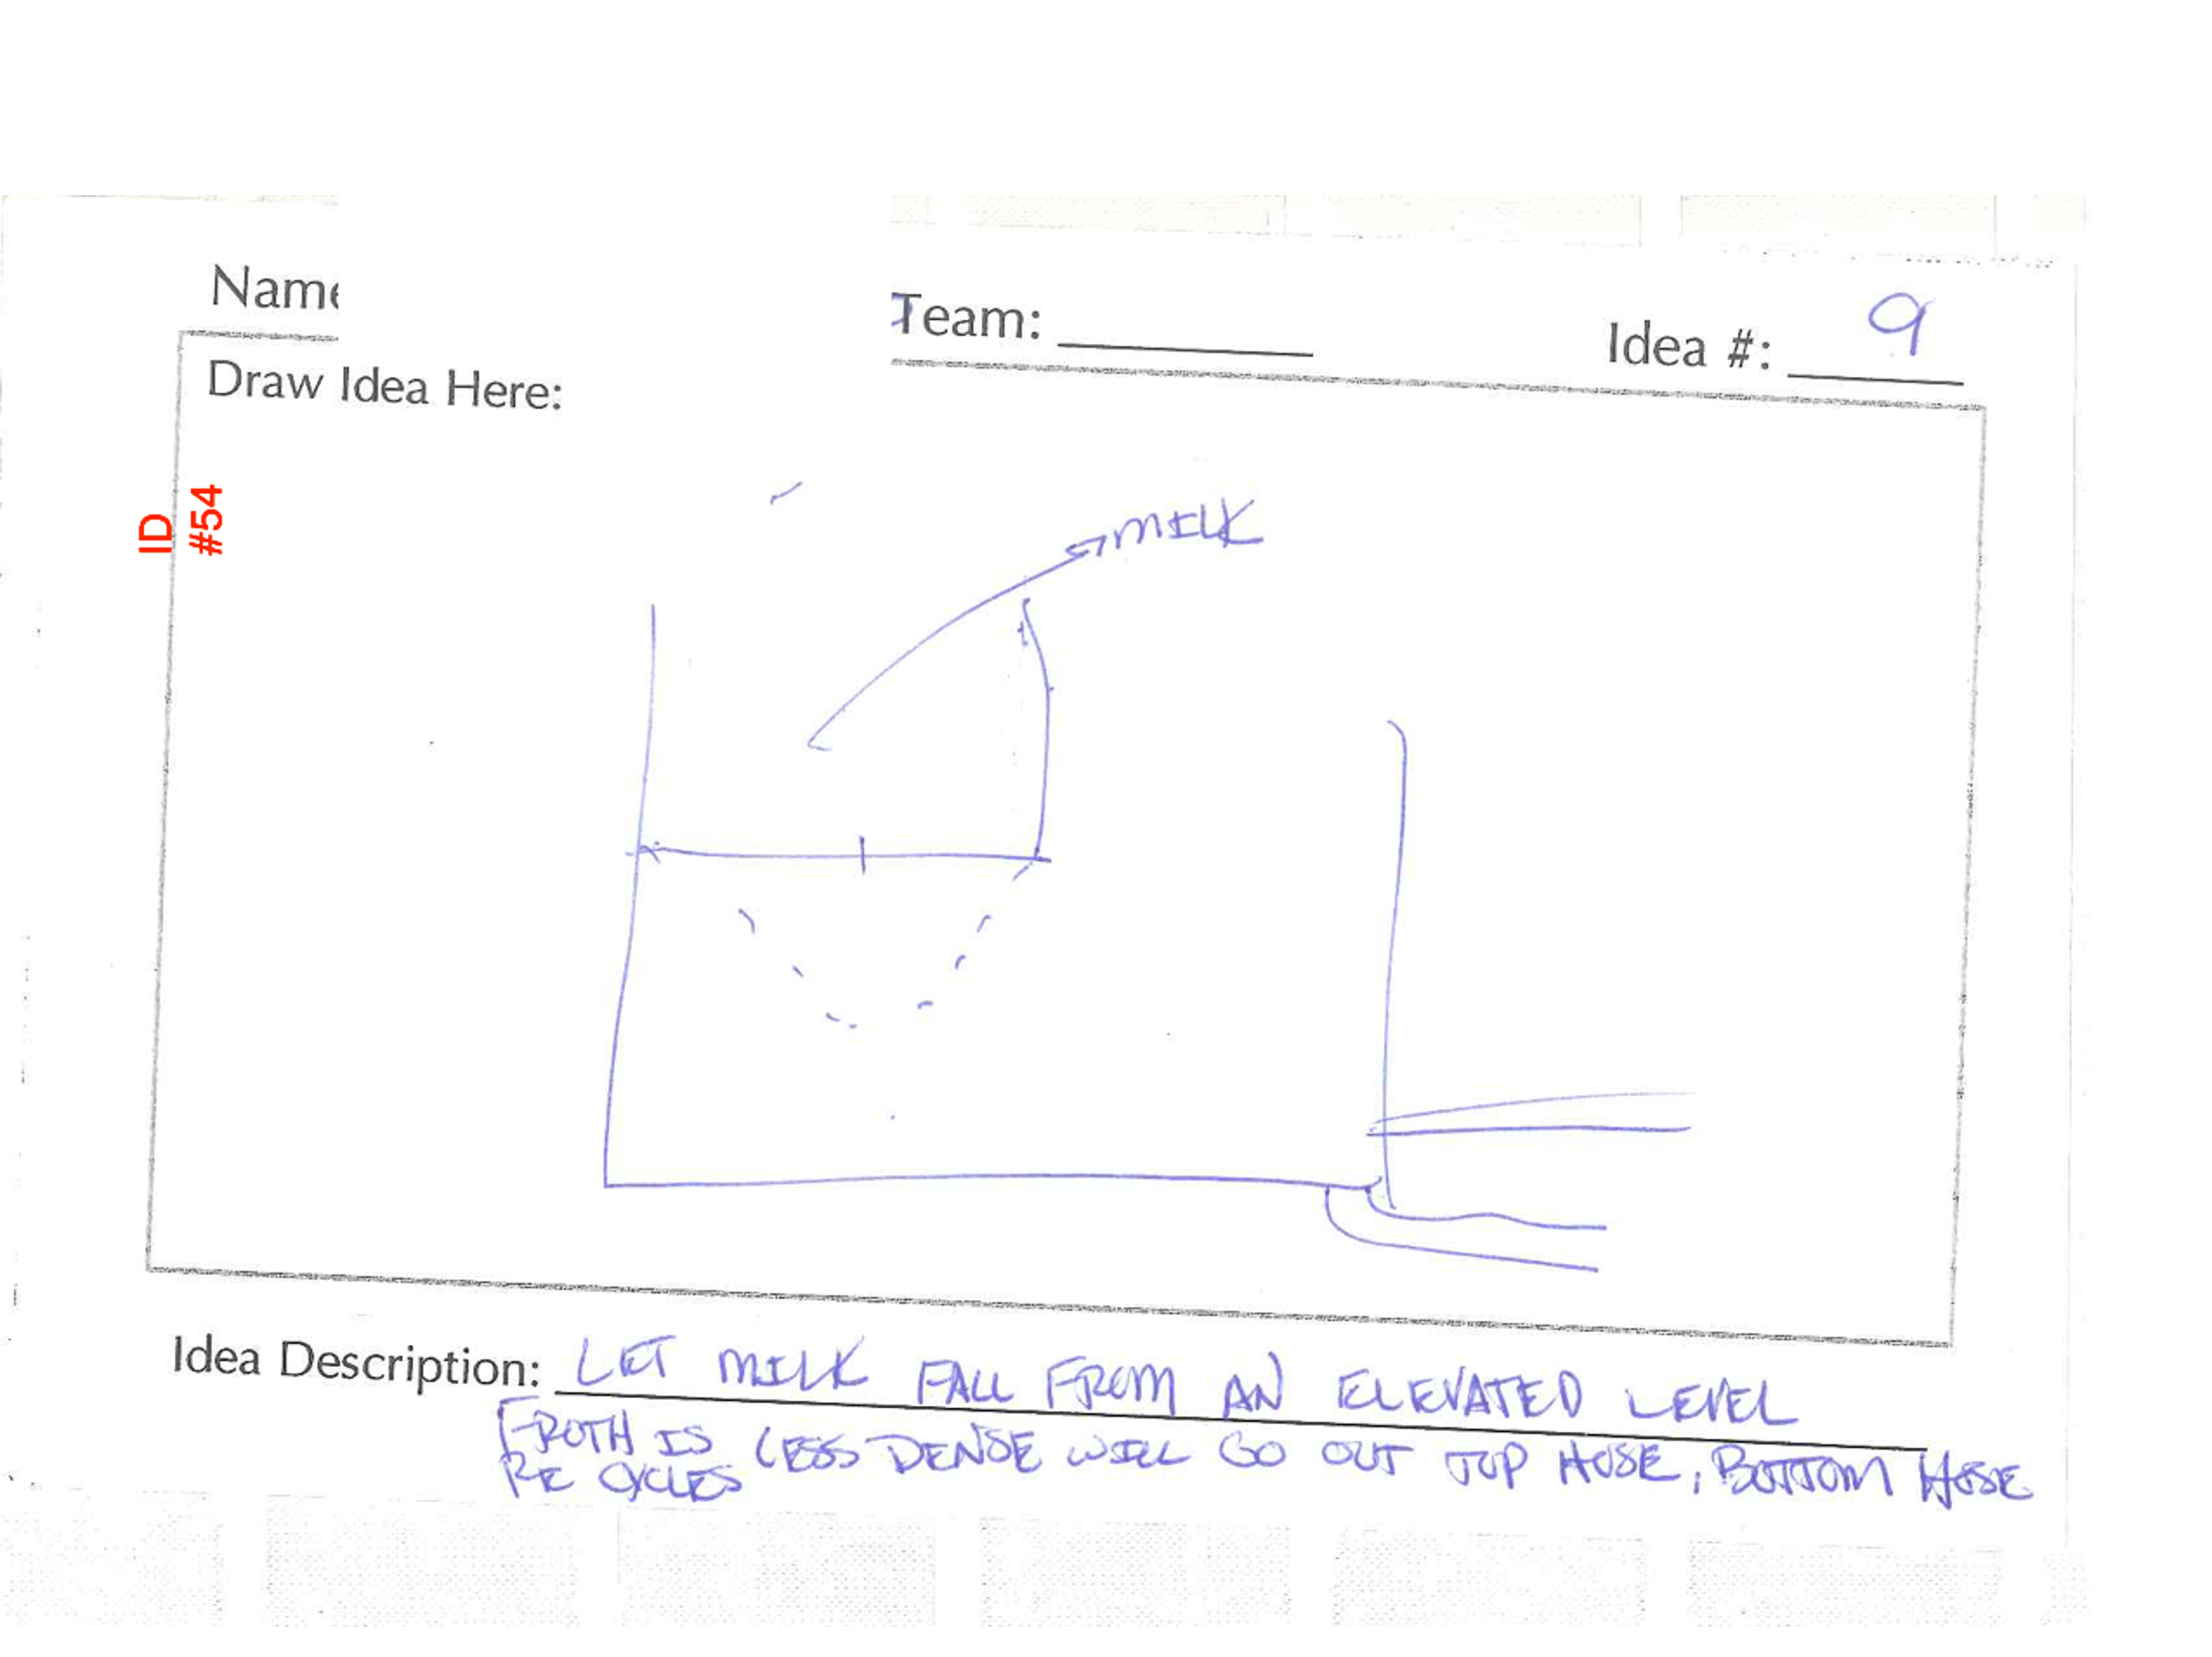 Name
Team:
Idea #: 9
Draw Idea Here:
ID
#54
MILK
Idea Description: LET MILK FALL FROM AN ELEVATED LEVEL
FROTH IS LESS DENSE WILL GO OUT TOP HOSE, BOTTOM HOSE
RE CYCLES